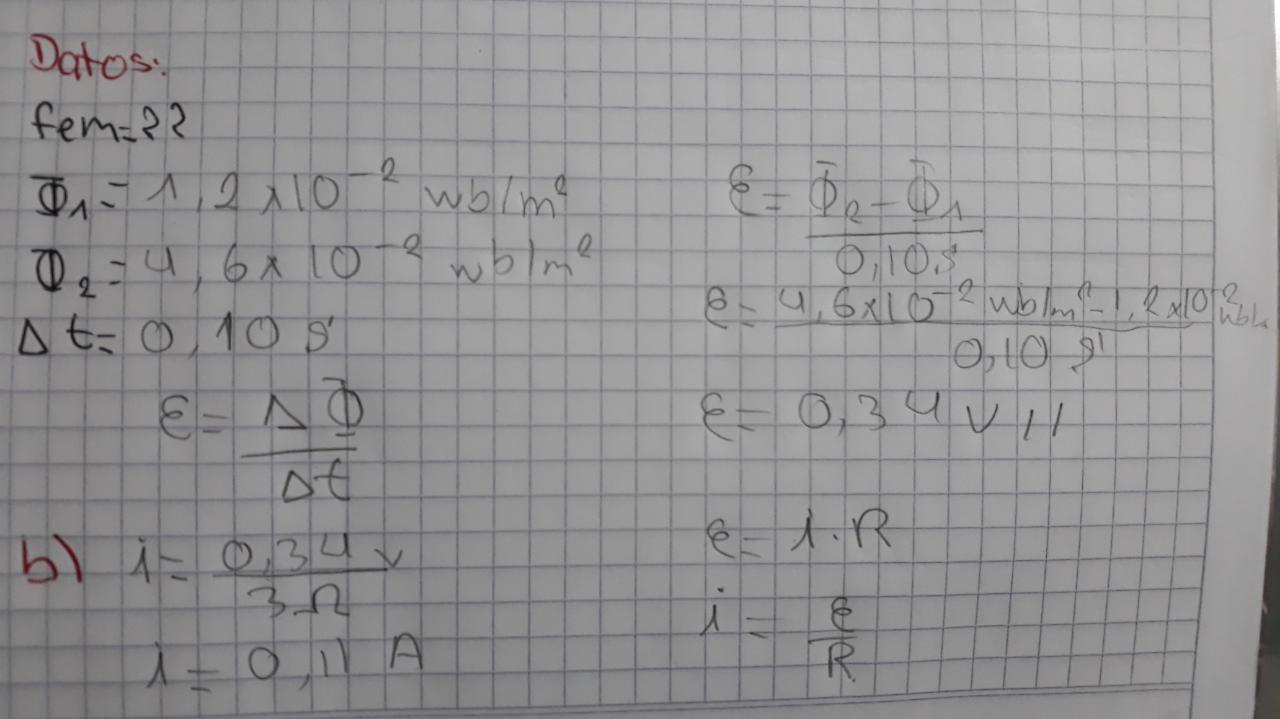 Datos:
fem=??
Φ₁ = 1,2x10⁻² wb/m²
Φ₂ = 4,6x10⁻² wb/m²
Δt= 0,10 s
ε= ΔΦ
Δt
ε= Φ₂-Φ₁
0,10s
ε= 4,6x10⁻² wb/m²-1,2x10⁻²
0,10 s
ε= 0,34 v //
b) i= 0,34 v
3Ω
i= 0,11 A
ε= i.R
i= ε
R